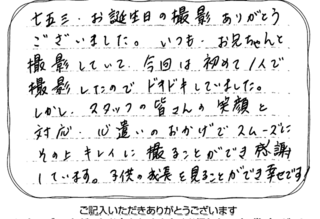 七五三・お誕生日の撮影ありがとう
ございました。いつも、お兄ちゃんと
撮影していて、今回は初めて1人で
撮影したのでドキドキしていました。
しかし、スタッフの皆さんの笑顔と
対応、心遣いのおかげでスムーズに
その上キレイに撮ることができ感謝
しています。子供の成長を見ることができ幸せです
ご記入いただきありがとうございます